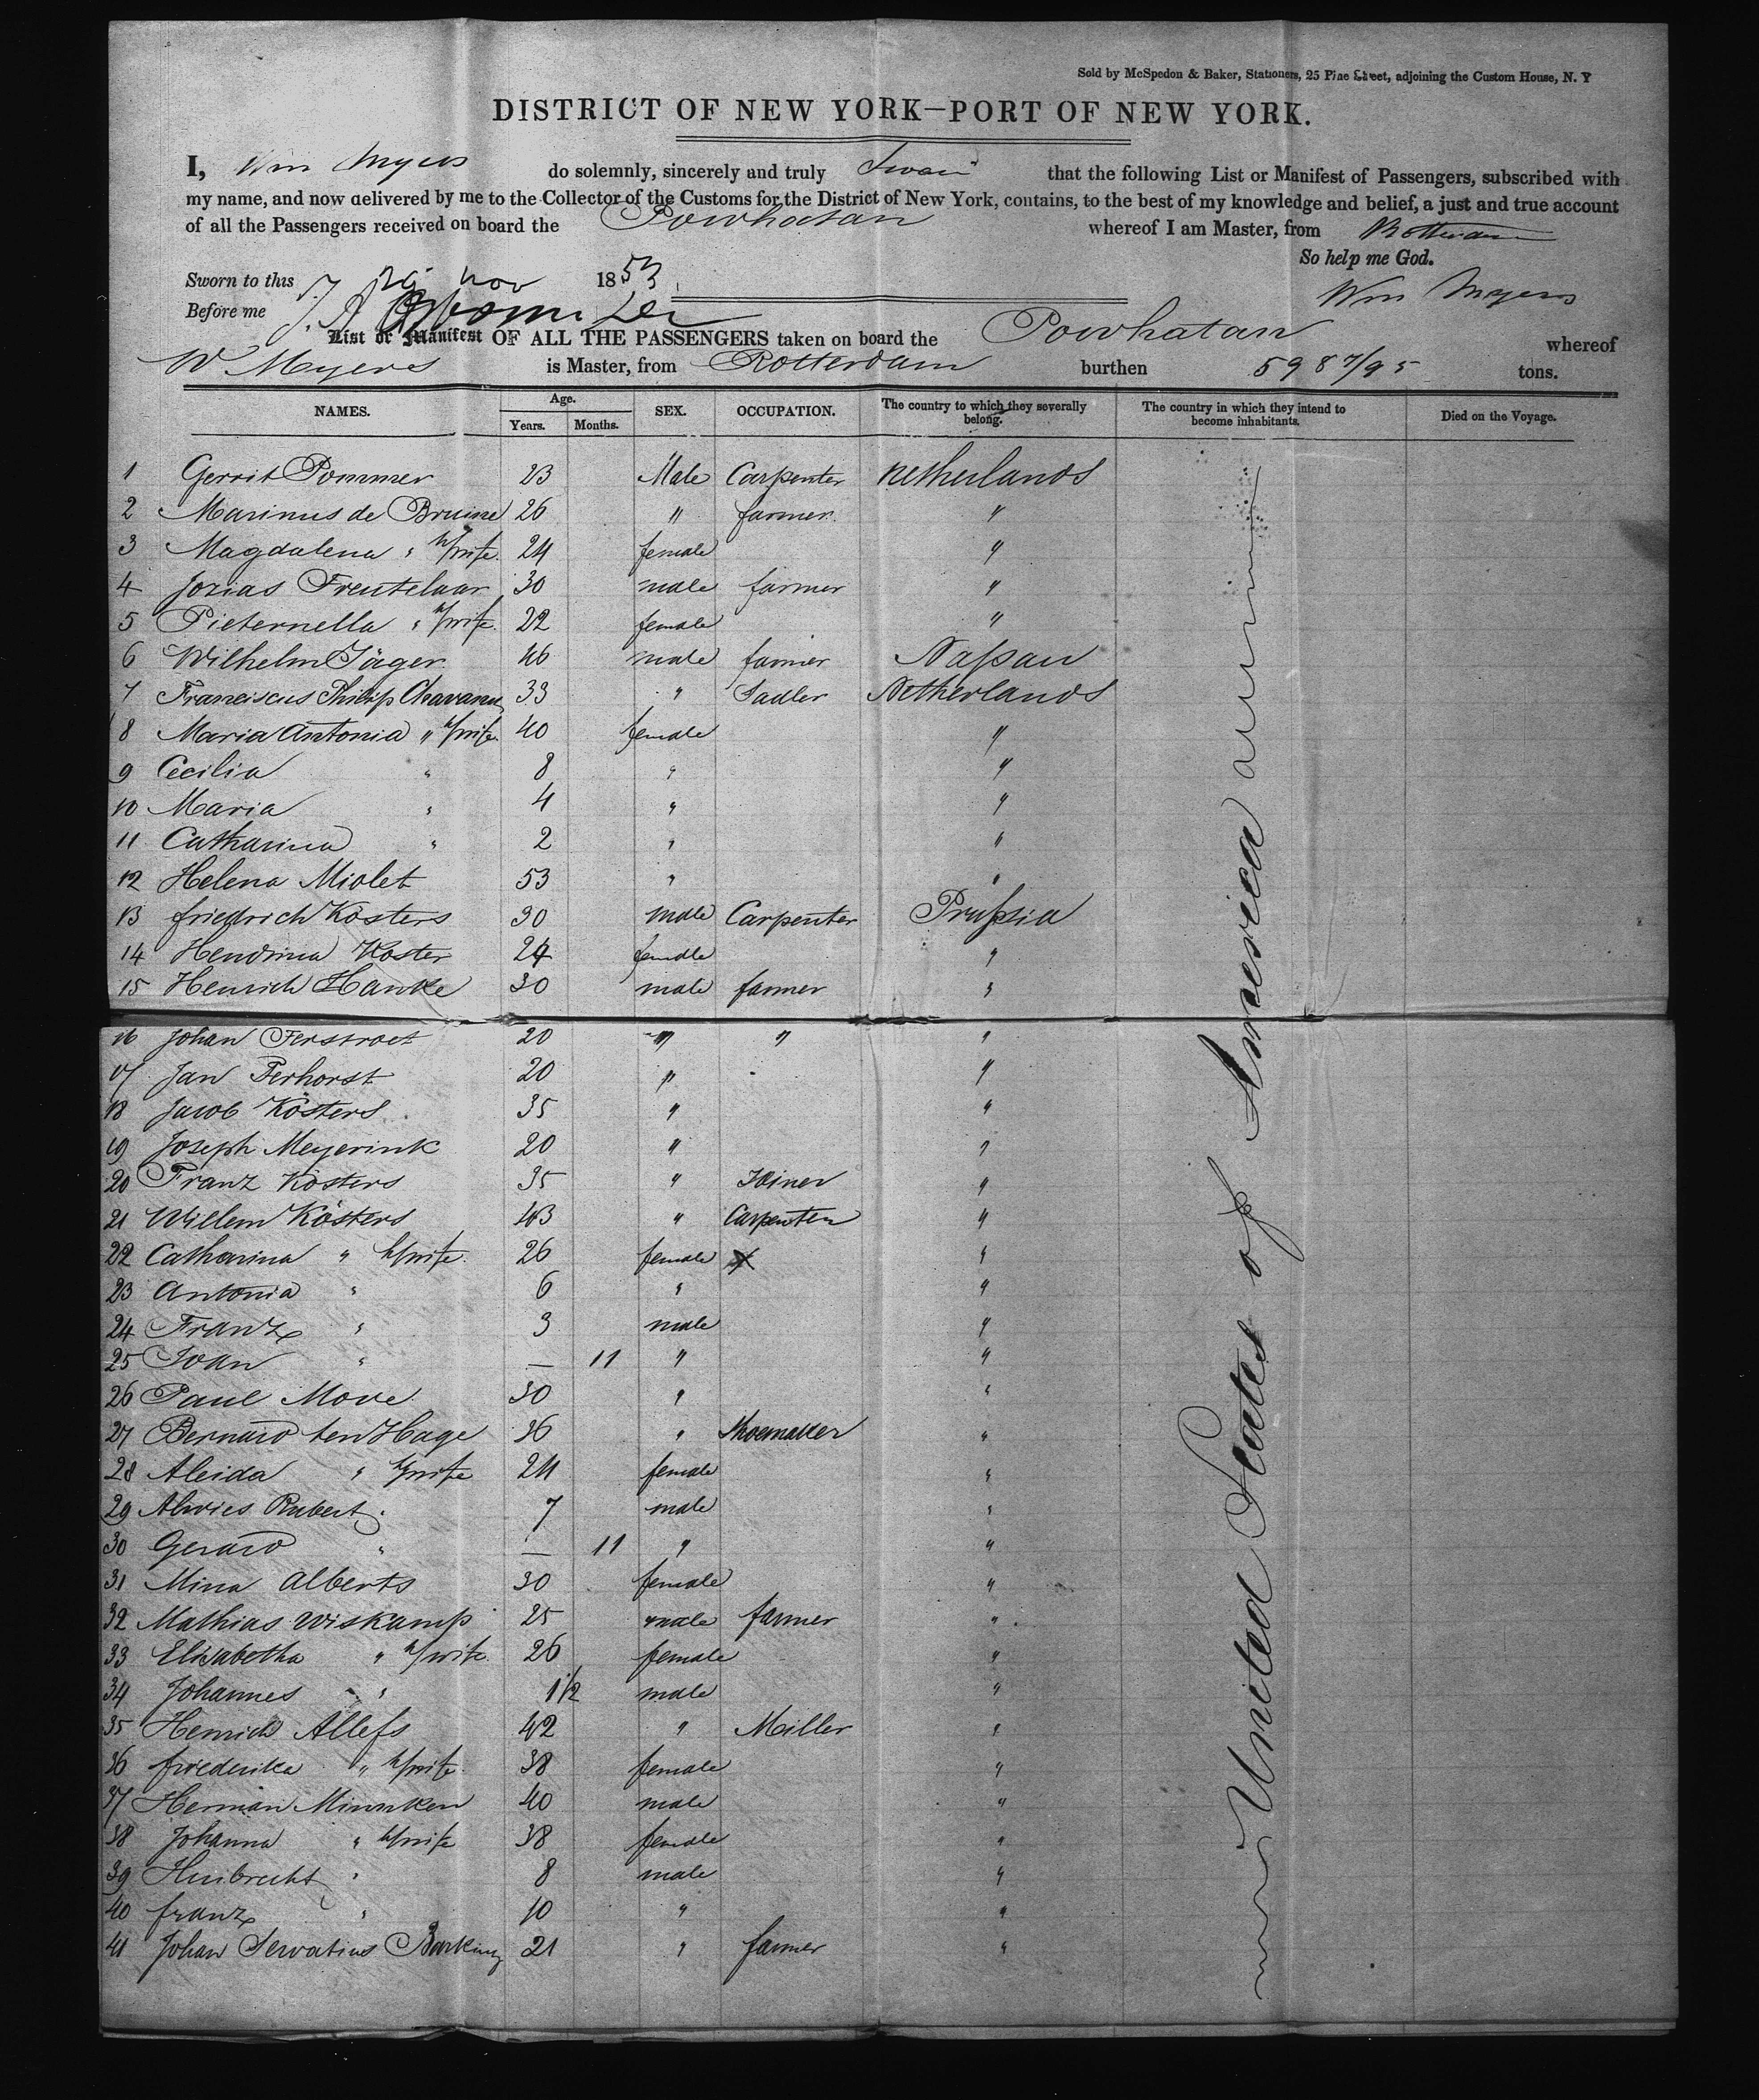 Sold by McSpedon & Baker, Stationers, 25 Pine Street, adjoining the Custom House, N. Y
DISTRICT OF NEW YORK—PORT OF NEW YORK.
I, Wm Myers do solemnly, sincerely and truly Swear that the following List or Manifest of Passengers, subscribed with
my name, and now delivered by me to the Collector of the Customs for the District of New York, contains, to the best of my knowledge and belief, a just and true account
of all the Passengers received on board the Powhatan whereof I am Master, from Rotterdam
So help me God.
Sworn to this nov 1853
Wm Meyers
Before me
List or Manifest OF ALL THE PASSENGERS taken on board the Powhatan whereof
W Meyers is Master, from Rotterdam burthen 598 7/95 tons.
NAMES. Age. Years. Months. SEX. OCCUPATION. The country to which they severally belong. The country in which they intend to become inhabitants. Died on the Voyage.
1 Gerrit Pommer 23 Male Carpenter Netherlands
2 Marinus de Bruine 26 " farmer "
3 Magdalena " h/wife 24 female "
4 Josias Freutelaar 30 male farmer "
5 Pieternella " h/wife 22 female "
6 Wilhelm Jäger 46 male farmer Nassau
7 Franciscus Philip 33 " Sadler Netherlands
8 Maria Antonia " h/wife 40 female "
9 Cecilia " 8 " "
10 Maria " 4 " "
11 Catharina " 2 " "
12 Helena Miolet 53 " "
13 friedrich Kösters 30 male Carpenter Prussia
14 Hendrina Koster 24 female "
15 Henrich Hanke 30 male farmer "
16 Johan 20 " " "
17 Jan Terhorst 20 " "
18 Jacob Kösters 35 " "
19 Joseph Meyerink 20 " "
20 Franz Kösters 35 " Joiner "
21 Willem Kösters 43 " Carpenter "
22 Catharina " h/wife 26 female "
23 Antonia " 6 " "
24 Franz " 3 male "
25 Joan " — 11 " "
26 Paul Move 30 " "
27 Bernard ten Hage 36 " Shoemaker "
28 Aleida " h/wife 24 female "
29 Rubert " 7 male "
30 Gerard " — 11 " "
31 Mina Alberts 30 female "
32 Mathias Wiskamp 25 male farmer "
33 Elisabetha " h/wife 26 female "
34 Johannes " 1 1/2 male "
35 Henrich Allefs 42 " Miller "
36 friederika " h/wife 38 female "
37 Herman Minnken 40 male "
38 Johanna " h/wife 38 female "
39 Huibrecht " 8 male "
40 franz " 10 " "
41 Johan Servatius Barking 21 " farmer "
United States of America